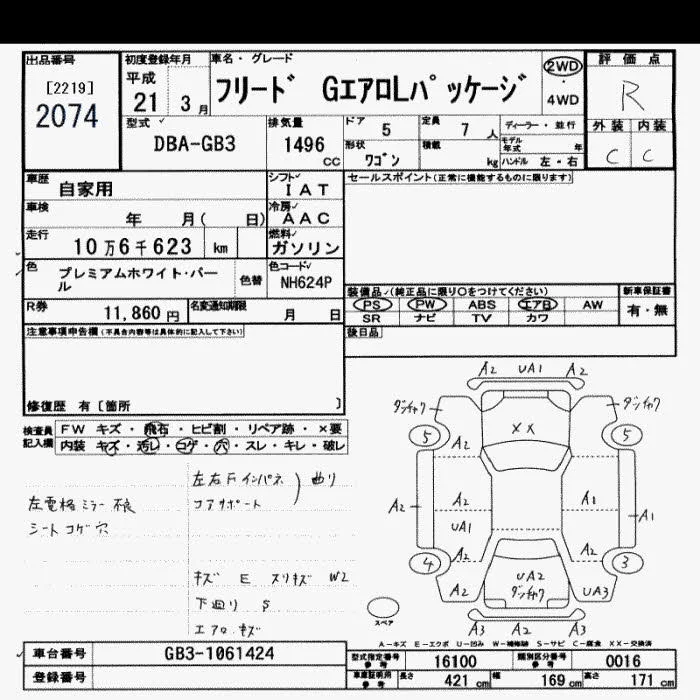 出品番号
[2219]
2074
初度登録年月
平成
21 3 月
車名・グレード
フリード GエアロLパッケージ
2WD
4WD
評価点
R
型式
DBA-GB3
排気量
1496
CC
ドア
5
定員
7 人
ディーラー・並行
モデル年式 年
形状
ワゴン
積載
kg
ハンドル 左・右
外装 内装
C C
車歴
自家用
シフト
IAT
セールスポイント(正常に機能するものに限ります)
車検
年 月( 日)
冷房
AAC
走行
10万6千623 km
燃料
ガソリン
色
プレミアムホワイト・パール
色替
色コード
NH624P
装備品(純正品に限り○をつけてください)
新車保証書
PS PW ABS エアB AW
有・無
SR ナビ TV カワ
R券
11,860 円
名変通知期限
月 日
後日品
注意事項申告欄(不具合内容等は具体的に記入して下さい)
修復歴 有〔箇所 〕
検査員記入欄
FW キズ・飛石・ヒビ割・リペア跡・×要
内装 キズ・汚レ・コゲ・穴・スレ・キレ・破レ
左電格ミラー不良
シートコゲ穴
左右Fインパネ
コアサポート
曲り
キズ E スリキズ W2
下廻り S
エアロキズ
A2 UA1 A2
ダンチャク
ダンチャク
5
5
XX
A2
A2
A2
UA1
A1
A1
A2
A2
4
3
A2
UA2
ダンチャク
UA3
A3 A2 A3
スペア
A-キズ E-エクボ U-凹み W-補修跡 S-サビ C-腐食 XX-交換済
車台番号
GB3-1061424
登録番号
型式指定番号
参考
16100
類別区分番号
参考
0016
車庫証明用
参考
長さ
421 cm
幅
169 cm
高さ
171 cm